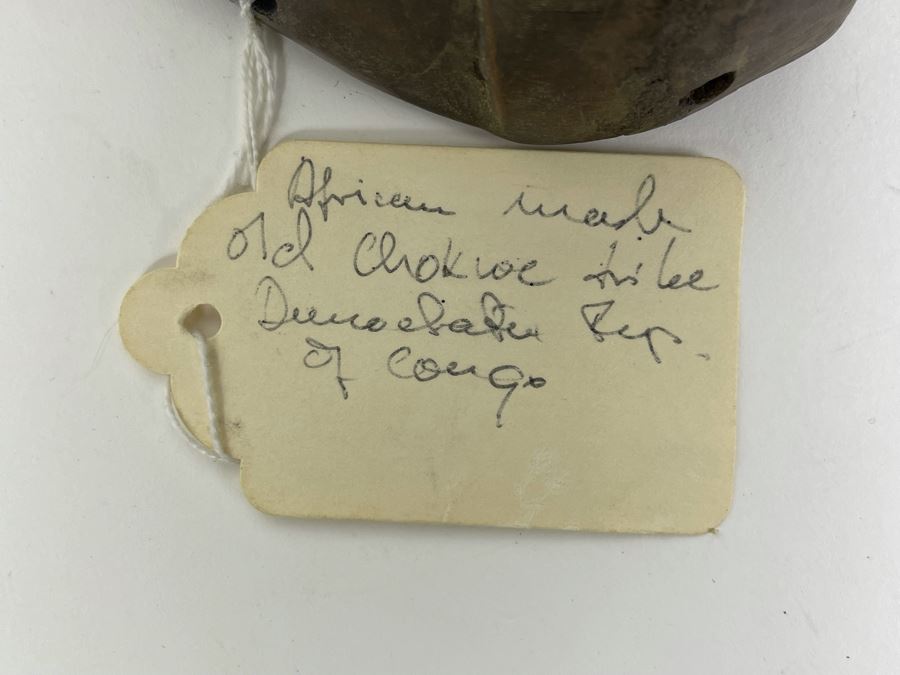 African made
old Chokwe tribe
Democratic Rep.
of Congo